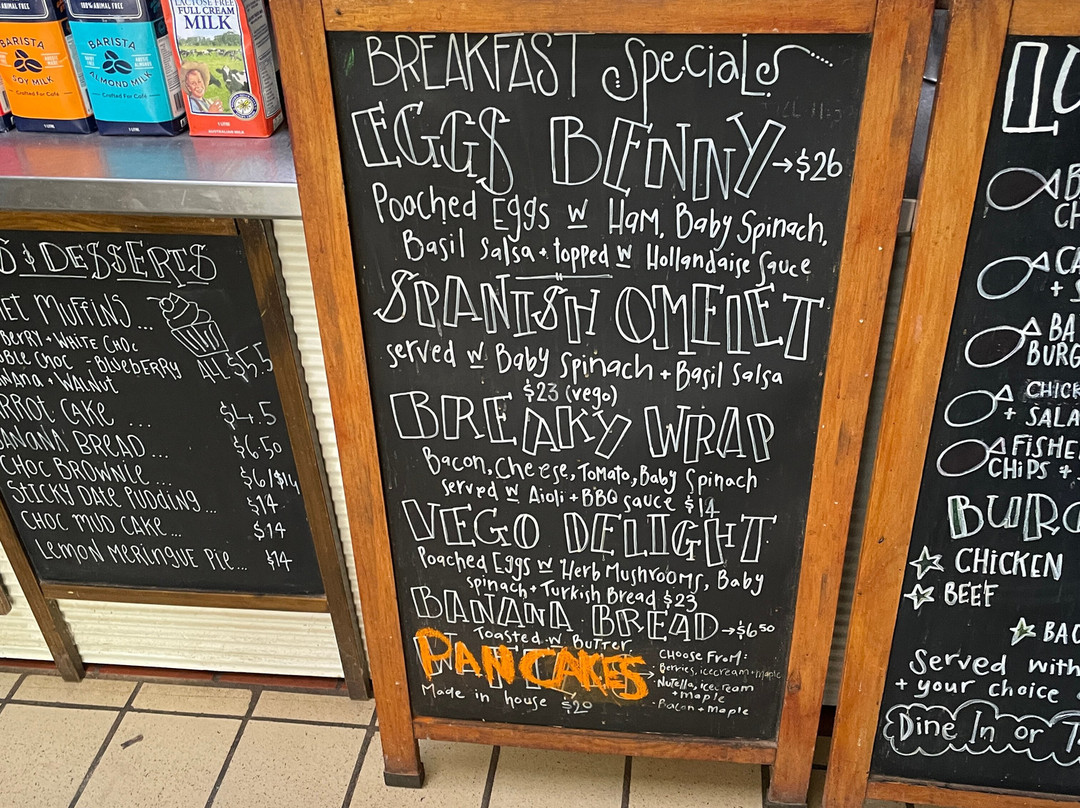 100% ANIMAL FREE
BARISTA
SOY MILK
Crafted For Cafe
100% ANIMAL FREE
BARISTA
ALMOND MILK
Crafted For Cafe
LACTOSE FREE
FULL CREAM
MILK
1 LITRE
AUSTRALIAN MILK
S & DESSERTS
MUFFINS ...
BERRY + WHITE CHOC
CHOC - BLUEBERRY ALL $5.5
+ WALNUT
CAKE ... $4.5
BANANA BREAD ... $6.50
CHOC BROWNIE ... $6/$14
STICKY DATE PUDDING ... $14
CHOC MUD CAKE ... $14
LEMON MERINGUE PIE ... $14
BREAKFAST SpeciaLS
EGGS BENNY → $26
Poached Eggs w Ham, Baby Spinach,
Basil Salsa + topped w Hollandaise Sauce
SPANISH OMELET
served w Baby Spinach + Basil Salsa
$23 (vego)
BREAKY WRAP
Bacon, Cheese, Tomato, Baby Spinach
served w Aioli + BBQ sauce $14
VEGO DELIGHT
Poached Eggs w Herb Mushrooms, Baby
spinach + Turkish Bread $23
BANANA BREAD → $6.50
Toasted w Butter
PANCAKES
Made in house $20
CHOOSE FROM:
· Berries, icecream + maple
· Nutella, icecream
+ maple
· Bacon + Maple
CHICK
+ SALA
FISHE
CHIPS +
BURG
CHICKEN
BEEF
BAC
Served with
+ your choice
Dine In or T